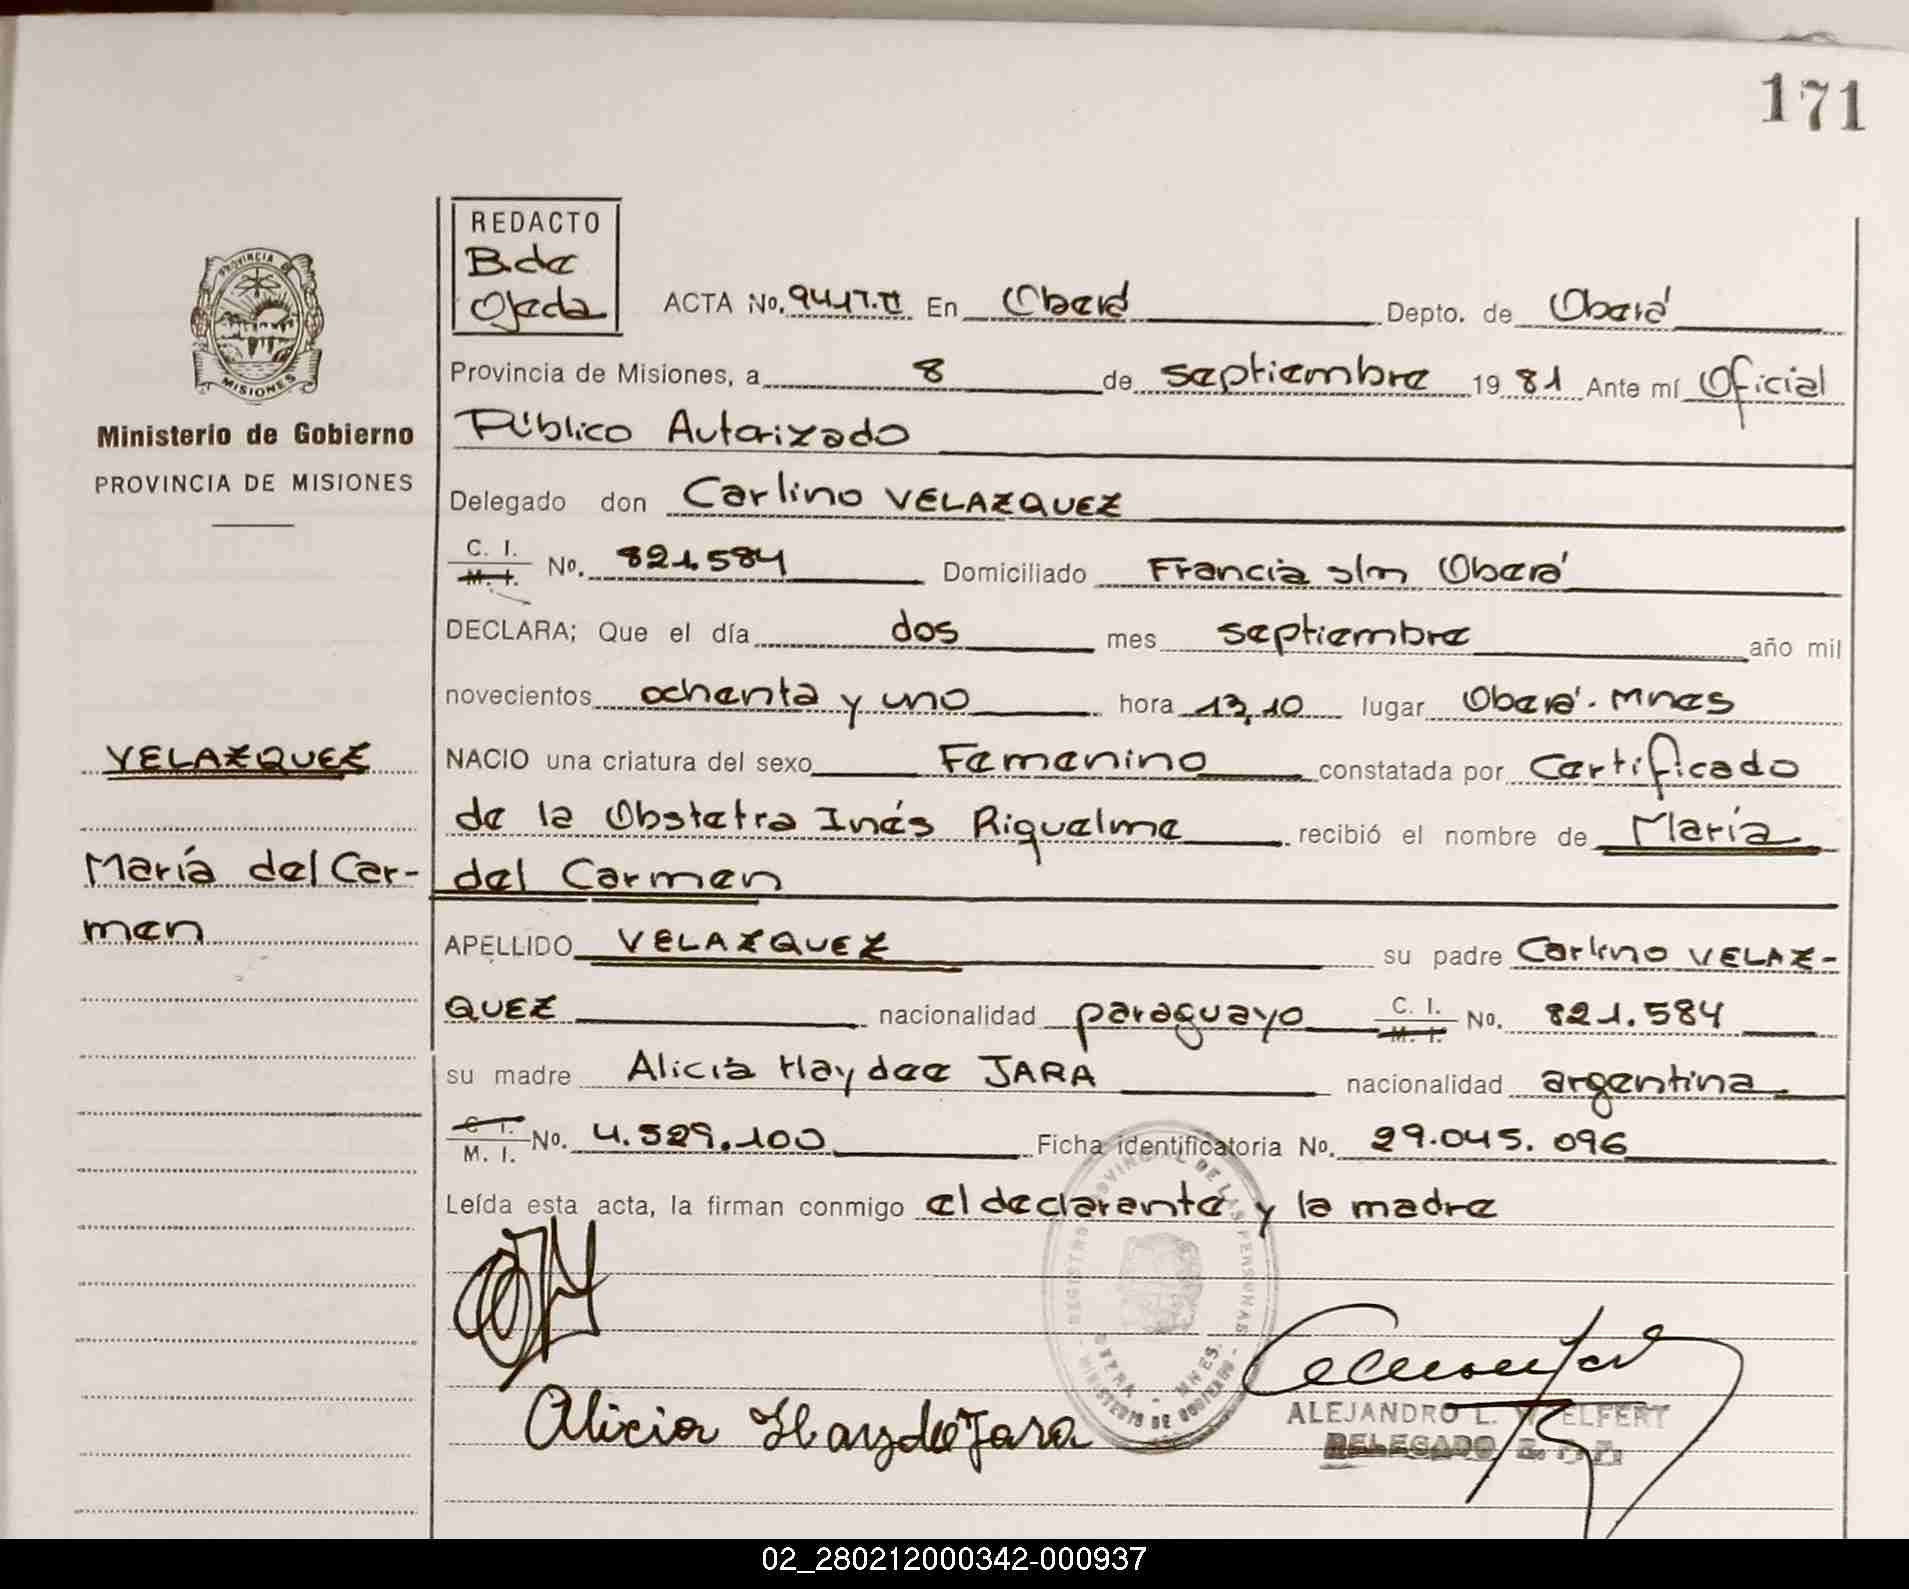 171
REDACTO
B. de
Ojeda
ACTA No. 947.T.II En Oberá Depto. de Oberá
Provincia de Misiones, a 8 de septiembre 1981 Ante mí Oficial
Público Autorizado
Delegado don Carlino VELAZQUEZ
C. I.
M. I. No. 821.584 Domiciliado Francia s/n Oberá
DECLARA; Que el día dos mes septiembre año mil
novecientos ochenta y uno hora 13,10 lugar Oberá. Mnes
NACIO una criatura del sexo Femenino constatada por Certificado
de la Obstetra Inés Riquelme recibió el nombre de María
del Carmen
APELLIDO VELAZQUEZ su padre Carlino VELAZ-
QUEZ nacionalidad paraguayo C. I. M. I. No. 821.584
su madre Alicia Haydee JARA nacionalidad argentina
C. I.
M. I. No. 4.529.100 Ficha identificatoria No. 29.045.096
Leída esta acta, la firman conmigo el declarante y la madre
Alicia Haydee Jara
ALEJANDRO L. WELFERT
DELEGADO
PROVINCIA DE
MISIONES
Ministerio de Gobierno
PROVINCIA DE MISIONES
VELAZQUEZ
María del Car-
men
REGISTRO PROVINCIAL DE LAS PERSONAS
MINISTERIO DE GOBIERNO
OBERA - MNES.
02_280212000342-000937